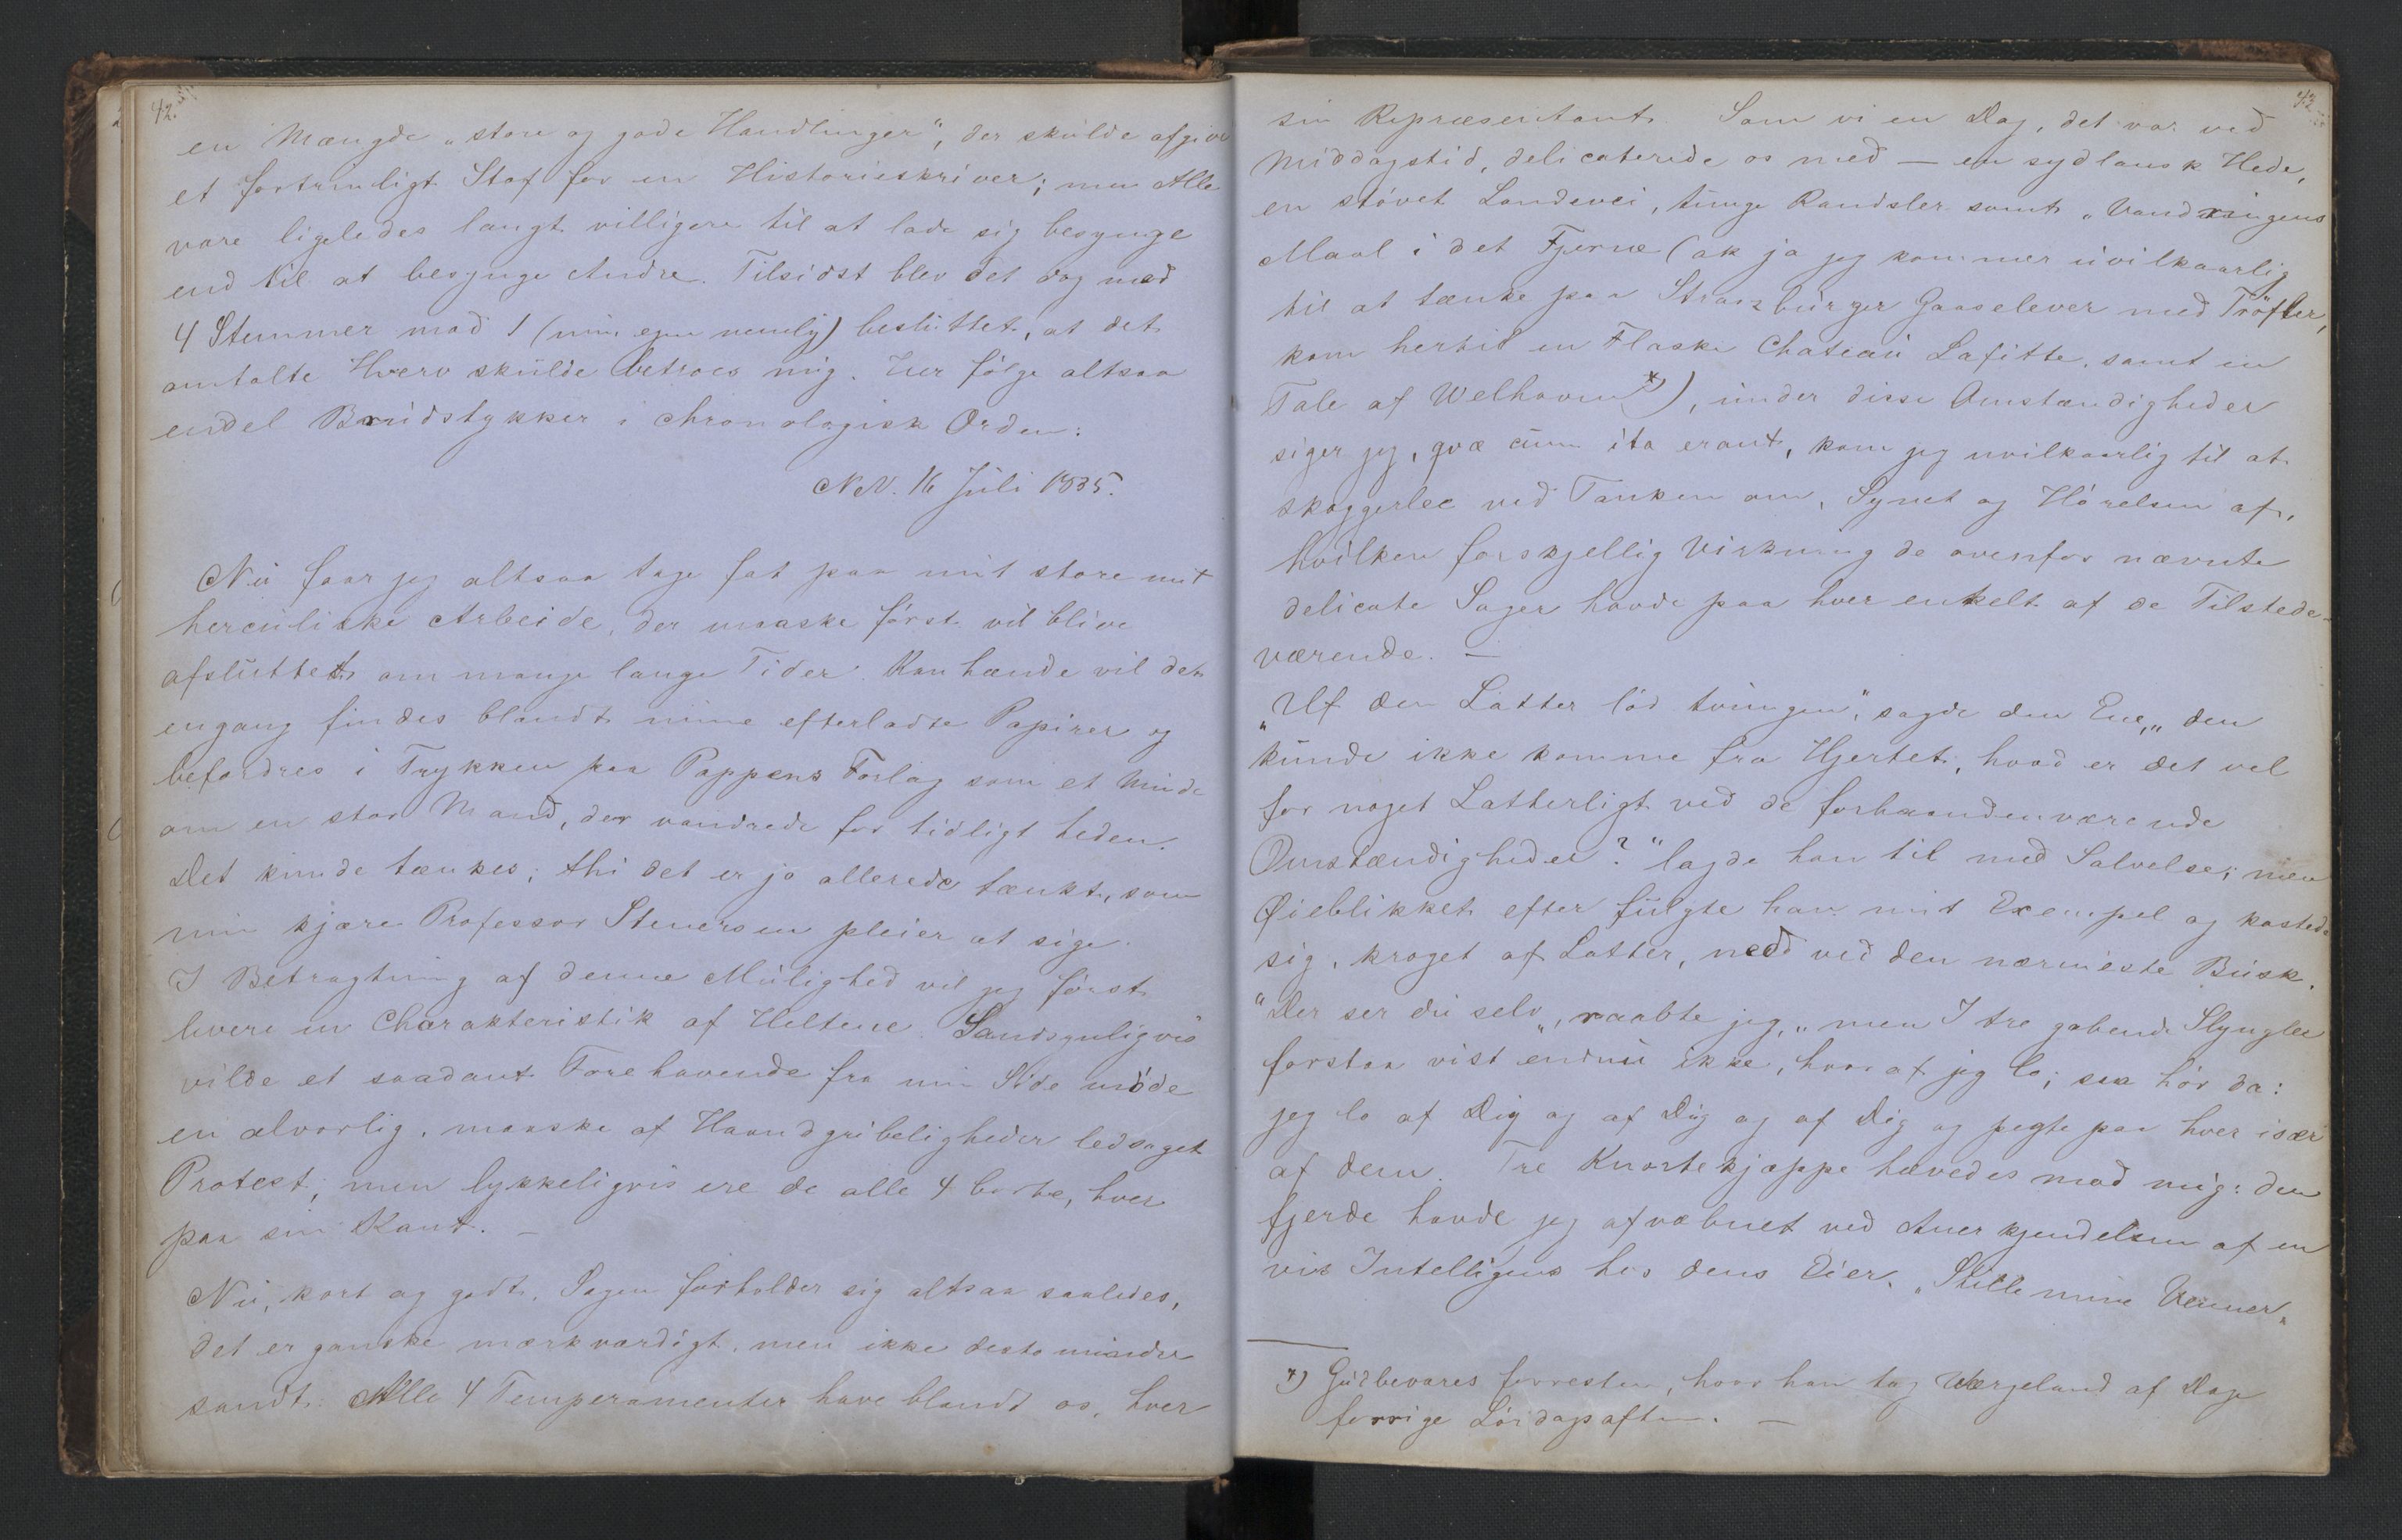 42.
en Mængde „store og gode Handlinger“, der skulde afgive
et fortrinligt Stof for en Historieskriver; men Alle
vare ligeledes langt villigere til at lade sig besynge
end til at besynge Andre. Tilsidst blev det dog med
4 Stemmer mod 1 (min egen nemlig) besluttet, at det
omtalte Hverv skulde betroes mig. Her følge altsaa
endel Brudstykker i chronologisk Orden:
NN. 16 Juli 1835.
Nu faar jeg altsaa tage fat paa mit store mit
herculiske Arbeide, der maaske først vil blive
afsluttet om mange lange Tider. Kanhænde vil det
engang findes blandt mine efterladte Papirer og
befordres i Trykken paa Pappens Forlag som et Minde
om en stor Mand, der vandrede for tidligt heden.
Det kunde tænkes; thi det er jo allerede tænkt, som
min kjære Professor Stenersen pleier at sige.
I Betragtning af denne Mulighed vil jeg først
levere en Charakteristik af Heltene. Sandsynligvis
vilde et saadant Forehavende fra min Side møde
en alvorlig, maaske af Haandgribeligheder ledsaget
Protest; men lykkeligvis ere de alle 4 borte, hver
paa sin Kant. —
Nu, kort og godt, Sagen forholder sig altsaa saaledes,
det er ganske mærkværdigt, men ikke desto mindre
sandt: Alle 4 Temperamenter have blandt os, hver
43
sin Repræsentant. Som vi en Dag, det var ved
Middagstid, delicaterede os med — en sydlansk Hede,
en støvet Landevei, tunge Randsler samt „Vandringens
Maal i det Fjerne (ak ja jeg kommer uvilkaarlig
til at tænke paa Straszburger Gaaselever med Trøfler,
kom hertil en Flaske Chateau Lafitte, samt en
Tale af Welhaven*)), under disse Omstændigheder
siger jeg, qvæ cum ita erant, kom jeg uvilkaarlig til at
skoggerlee ved Tanken om, Synet og Hørelsen af,
hvilken forskjellig Virkning de ovenfor nævnte
delicate Sager havde paa hver enkelt af de Tilstede-
værende. —
„Uf den Latter lød tvungen“, sagde den Ene, „den
kunde ikke komme fra Hjertet, hvad er det vel
for noget Latterligt ved de forhaandenværende
Omstændigheder?“ lagde han til med Salvelse; men
Øieblikket efter fulgte han mit Exempel og kastede
sig, kroget af Latter, ned ved den nærmeste Busk.
“Der ser du selv„, raabte jeg, „men I tre gabende Slyngler
forstaa vist endnu ikke, hvoraf jeg lo; saa hør da:
jeg lo af Dig og af Dig og af Dig og pegte paa hver især
af dem. Tre Knortekjæppe hævedes mod mig: den
fjerde havde jeg afvæbnet ved Anerkjendelsen af en
vis Intelligens hos dens Eier. „Stille mine Venner,
*) Gudbevares forresten, hvor han tog Wergeland af Dage
forrige Lørdagsaften. —